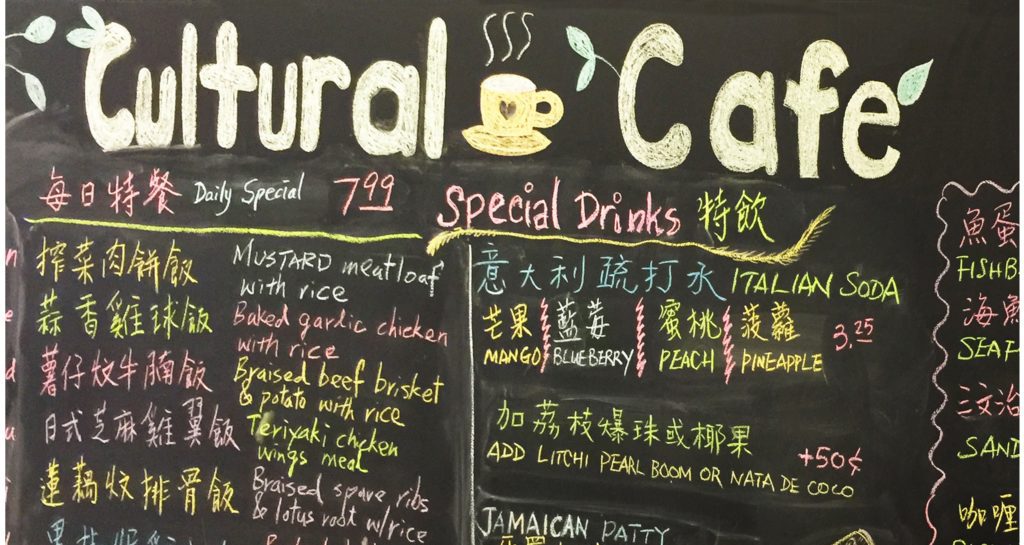 Cultural Cafe
每日特餐 Daily Special 7.99
榨菜肉餅飯 MUSTARD meatloaf with rice
蒜香雞球飯 Baked gardic chicken with rice
薯仔炆牛腩飯 Braised beef brisket & potato with rice
日式芝麻雞翼飯 Teriyaki chicken wings meal
蓮藕炆排骨飯 Braised spare ribs & lotus root w/rice
Special Drinks 特飲
意大利疏打水 ITALIAN SODA
芒果 藍莓 蜜桃 菠蘿 3.25
MANGO BLUEBERRY PEACH PINEAPPLE
加荔枝爆珠或椰果 +50¢
ADD LITCHI PEARL BOOM OR NATA DE COCO
JAMAICAN PATTY
魚蛋
FISHB
海鮮
SEAF
三文治
SAND
咖喱